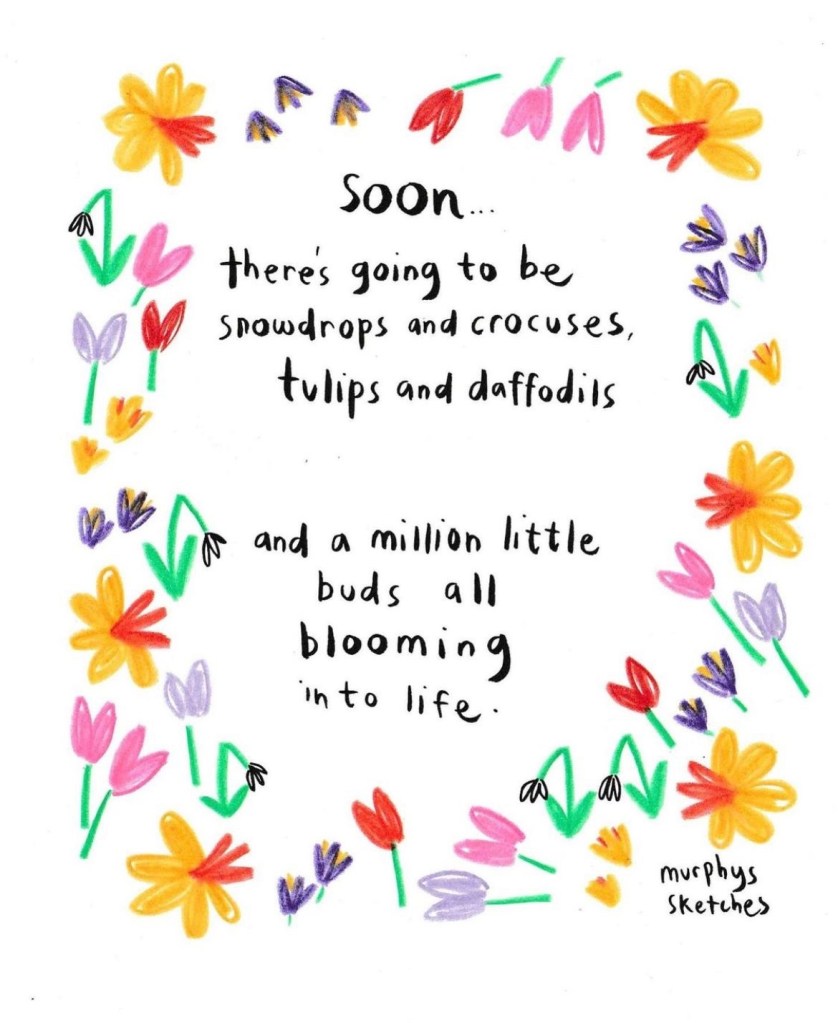 soon...
there's going to be
snowdrops and crocuses,
tulips and daffodils
and a million little
buds all
blooming
into life.
murphys
sketches